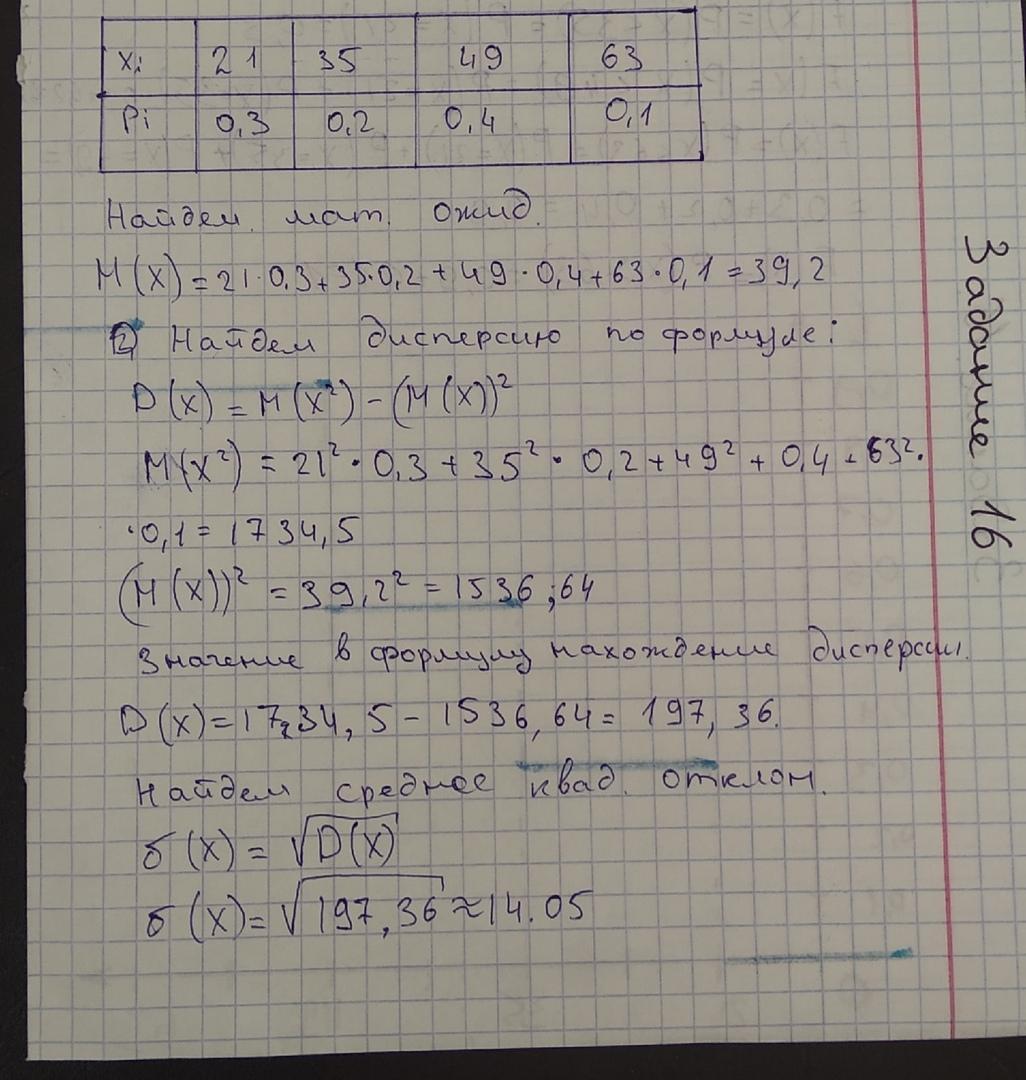 xi 21 35 49 63
Pi 0,3 0,2 0,4 0,1
Найдем мат. ожид.
M(X)=21·0,3+35·0,2+49·0,4+63·0,1=39,2
2) Найдем дисперсию по формуле:
D(X)=M(X²)-(M(X))²
M(X²)=21²·0,3+35²·0,2+49²+0,4-63²·
·0,1=1734,5
(M(X))²=39,2²=1536;64
Значение в формулу нахождение дисперсии.
D(X)=1734,5-1536,64=197,36.
Найдем среднее квад. отклон.
σ(X)=√D(X)
σ(X)=√197,36≈14.05
Задание 16